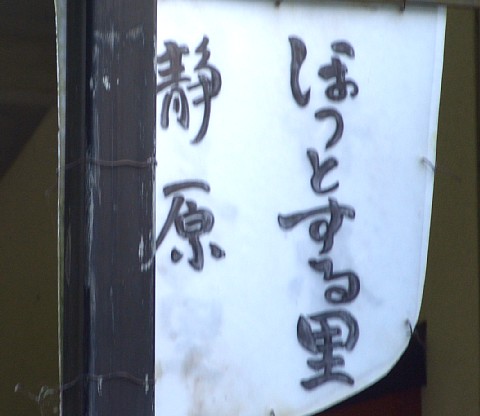 ほっとする里
静原